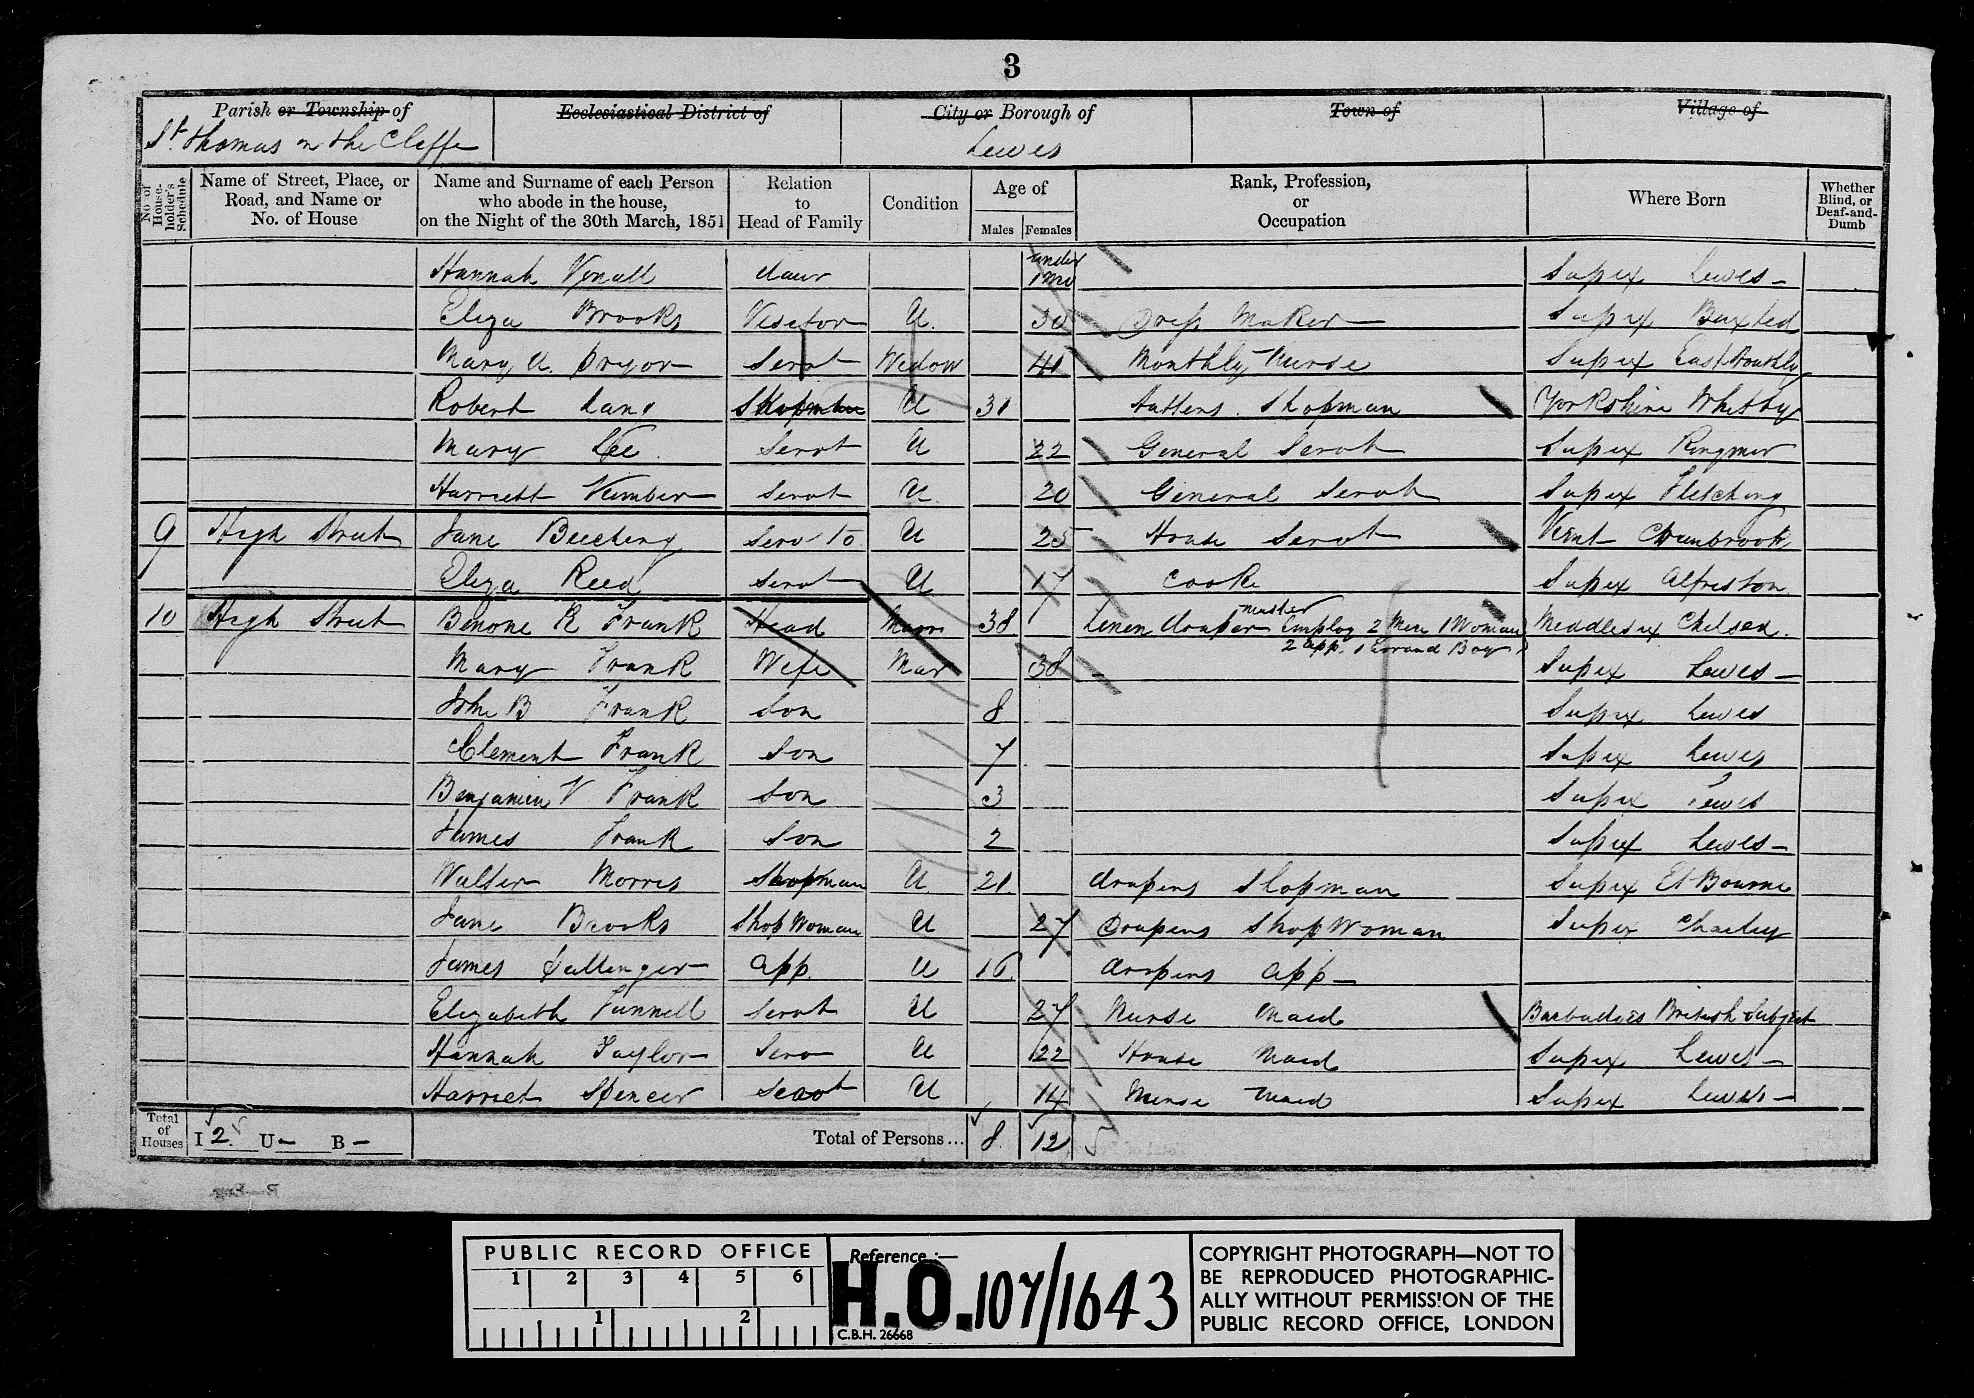 3
Parish or Township of
Ecclesiastical District of
City or Borough of
Town of
Village of
St. Thomas in the Cliffe
Lewes
No. of House-holder's Schedule
Name of Street, Place, or Road, and Name or No. of House
Name and Surname of each Person who abode in the house, on the Night of the 30th March, 1851
Relation to Head of Family
Condition
Age of
Males
Females
Rank, Profession, or Occupation
Where Born
Whether Blind, or Deaf-and-Dumb
Hannah Vinall daur under 1 Mo Sussex Lewes
Eliza Brooks Visitor U. 30 Dress Maker Sussex Buxted
Mary A. Pryor Servt Widow 41 Monthly Nurse Sussex East Hoathly
Robert U 31 Shopman Yorkshire Whitby
Mary Servt U 22 General Servt Sussex Ringmer
Harriett Servt U. 20 General Servt Sussex Fletching
9 High Street Jane Beeching Serv to U 25 House Servt Kent Cranbrook
Eliza Reed Servt U 17 Cooke Sussex Alfriston
10 High Street Benone R Frank Head Marr 38 Linen draper master Employ 2 Men 1 Woman Middlesex Chelsea.
2 app. 1 Errand Boy
Mary Frank Wife Mar 38 Sussex Lewes
John B Frank Son 8 Sussex Lewes
Clement Frank Son 7 Sussex Lewes
Benjamin V Frank Son 3 Sussex Lewes
James Frank Son 2 Sussex Lewes
Walter Morris Shopman U 21 drapers Shopman Sussex Et Bourne
Jane Brooks Shop Woman U 27 Drapers Shop Woman Sussex Chailey
James app. U 16 drapers app
Elizabeth Funnell Servt U 27 Nurse Maid Barbadoes British Subject
Hannah Taylor Serv U 22 House Maid Sussex Lewes
Harriet Spencer Servt U 14 Nurse Maid Sussex Lewes
Total of Houses
I 2 U - B -
Total of Persons...
8
12
PUBLIC RECORD OFFICE
1 2 3 4 5 6
1 2
Reference :—
H.O. 107/1643
C.B.H. 26668
COPYRIGHT PHOTOGRAPH—NOT TO
BE REPRODUCED PHOTOGRAPHIC-
ALLY WITHOUT PERMISSION OF THE
PUBLIC RECORD OFFICE, LONDON